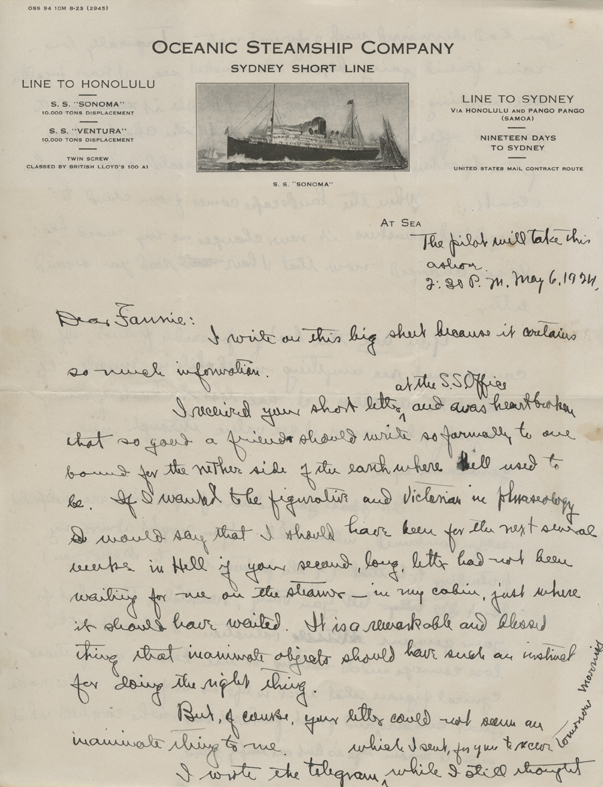 OSS 94 10M 8-23 (2945)
OCEANIC STEAMSHIP COMPANY
SYDNEY SHORT LINE
LINE TO HONOLULU
S. S. "SONOMA"
10,000 TONS DISPLACEMENT
S. S. "VENTURA"
10,000 TONS DISPLACEMENT
TWIN SCREW
CLASSED BY BRITISH LLOYD'S 100 A1
S. S. "SONOMA"
LINE TO SYDNEY
VIA HONOLULU AND PANGO PANGO
(SAMOA)
NINETEEN DAYS
TO SYDNEY
UNITED STATES MAIL CONTRACT ROUTE
AT SEA
The pilot will take this
ashore.
2:30 P. M. May 6, 1924.
Dear Fannie:
I write on this big sheet because it contains
so much information.
at the S.S. Office
I received your short letter, and was heartbroken
that so good a friend should write so formally to one
bound for the nether side of the earth where Hell used to
be. If I wanted to be figurative and Victorian in phraseology
I would say that I should have been for the next several
weeks in Hell if your second, long, letter had not been
waiting for me on the steamer — in my cabin, just where
it should have waited. It is a remarkable and blessed
thing that inanimate objects should have such an instinct
for doing the right thing.
But, of course, your letter could not seem an
inanimate thing to me.
which I sent, for you to receive tomorrow morning
I wrote the telegram, while I still thought